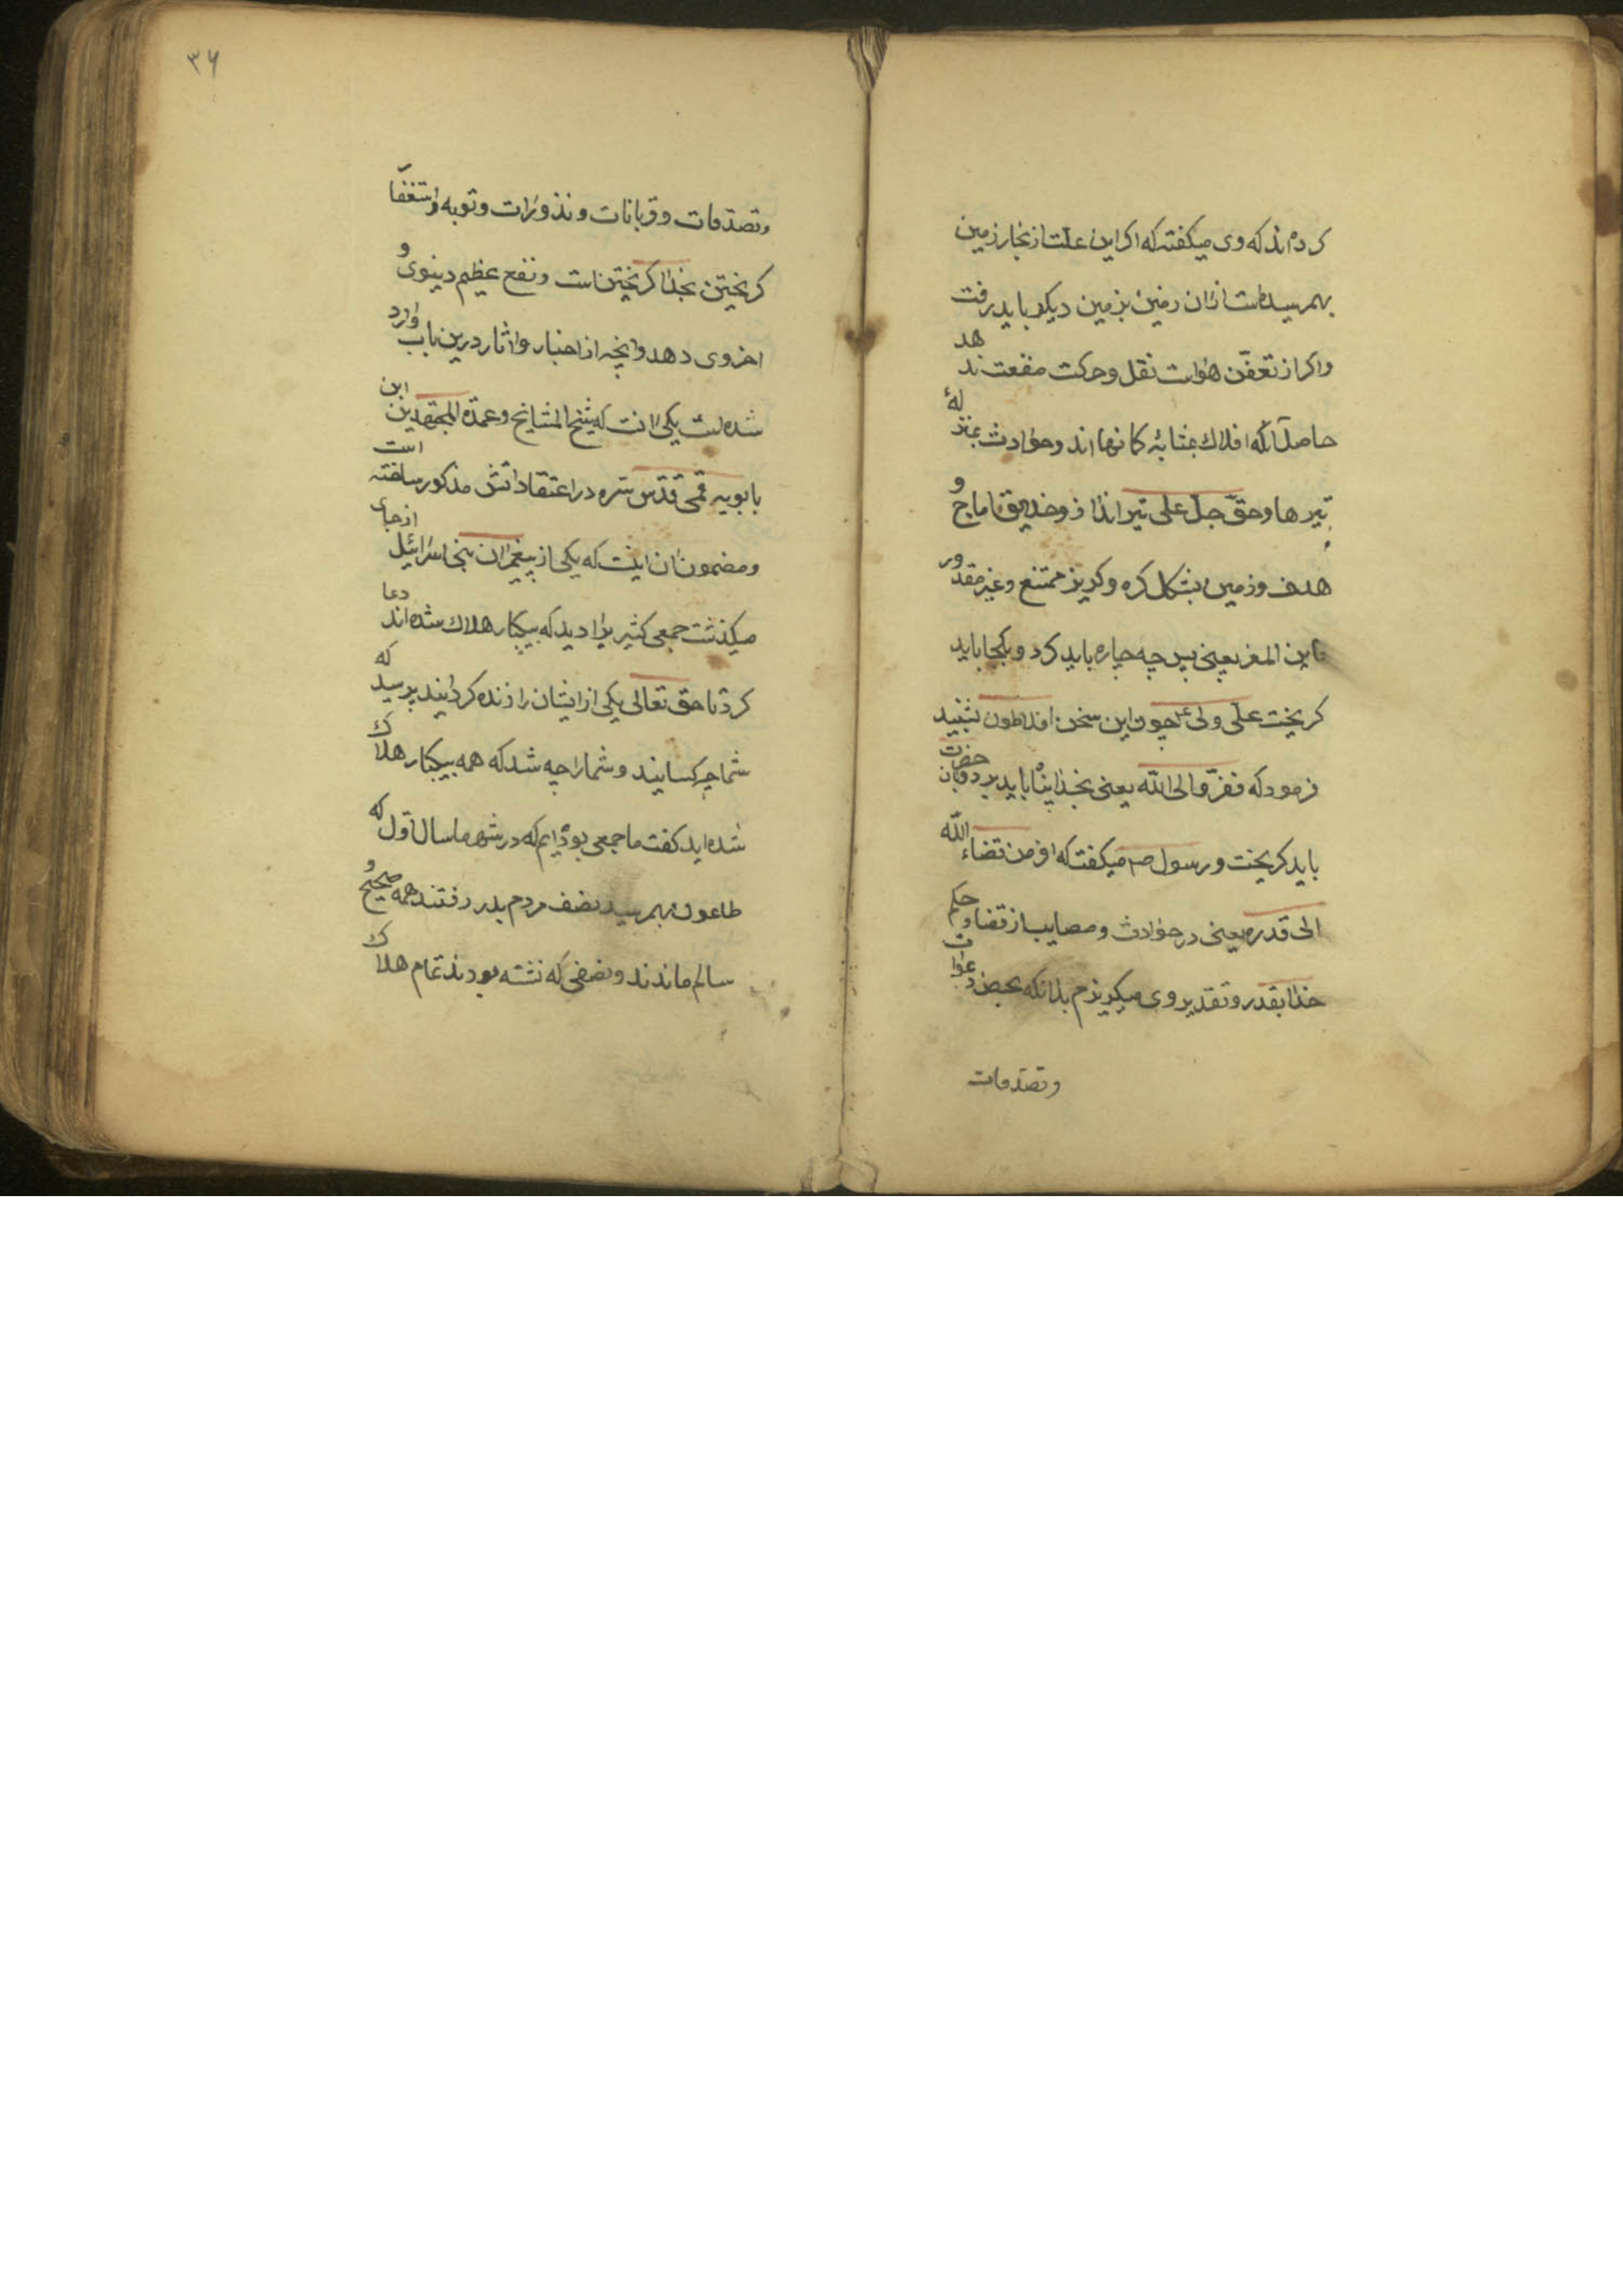 کرده‌اند که وی میکفته که اکر این علت از بخار زمین
بهمرسیده است از ان زمین بزمین دیکر باید رفت
واکر از تعفّن هواست نقل وحرکت منفعت ندهد
حاصل آنکه افلاک بمثابهٔ کمانها اند وحوادث بمنزلهٔ
تیرها وحقّ جلّ علی تیر انداز وخلایق اماج و
هدف وزمین بشکل کره وکریز ممتنع وغیر مقدور
فاین المفر یعنی پس چه چاره باید کرد وبکجا باید
کریخت علی ولی ع چون این سخن افلاطون بشنید
فرمود که ففرّوا الی اللّه یعنی بخدا پناه باید برد وبان حضرت
باید کریخت ورسول صم میکفته که افرّ من قضاء اللّه
الی قدره یعنی در حوادث ومصایب از قضا وحکم
خدا بقدر وتقدیر وی میکریزم بدانکه محض دعوات
وتصدقات
۳۶
وتصدّقات وقربانات ونذورات وتوبه واستغفار
کریختن بخدا کریختن است ونفع عظیم دینوی و
اخروی دهد وانچه از اخبار واثار درین باب وارد
شده است یکی انست که شیخ المشایخ وعمدة المجتهدین ابن
بابویه قمی قدّس سره در اعتقاداتش مذکور ساخته است
ومضمون ان اینست که یکی از پیغمبران بنی اسرائیل از جای
میکذشت جمعی کثیر یرا دید که بیکبار هلاک شده‌اند دعا
کرد تا حق تعالی یکی از ایشان را زنده کردانید پرسید که
شما چه کسانید وشما را چه شد که همه بیکبار هلاک
شده‌اید کفت ما جمعی بوده‌ایم که در شهر ما سال اول که
طاعون بهمرسید نصف مردم بدر رفتند همه صحیح و
سالم ماندند ونصفی که نشسته بودند تمام هلاک